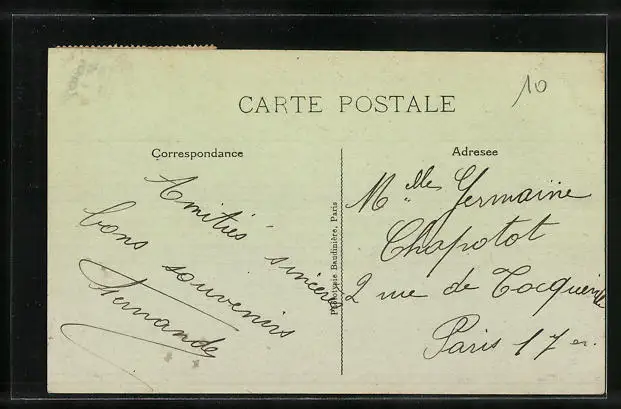 10
CARTE POSTALE
Correspondance
Amitiés sincères
bons souvenirs
Fernande
Phototypie Baudinière, Paris
Adresse
Melle Germaine
Chapotot
2 rue de Tocqueville
Paris 17 er.